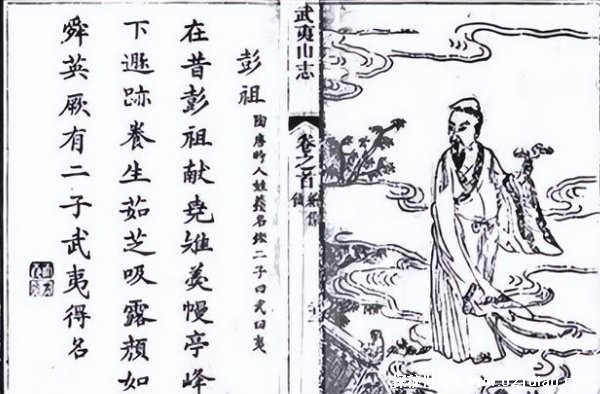 武夷山志
卷之首
彭祖 陶唐時人姓籛名鏗二子曰武曰夷
在昔彭祖献堯雉羹幔亭峰
下遯跡養生茹芝吸露顏如
舜英厥有二子武夷得名